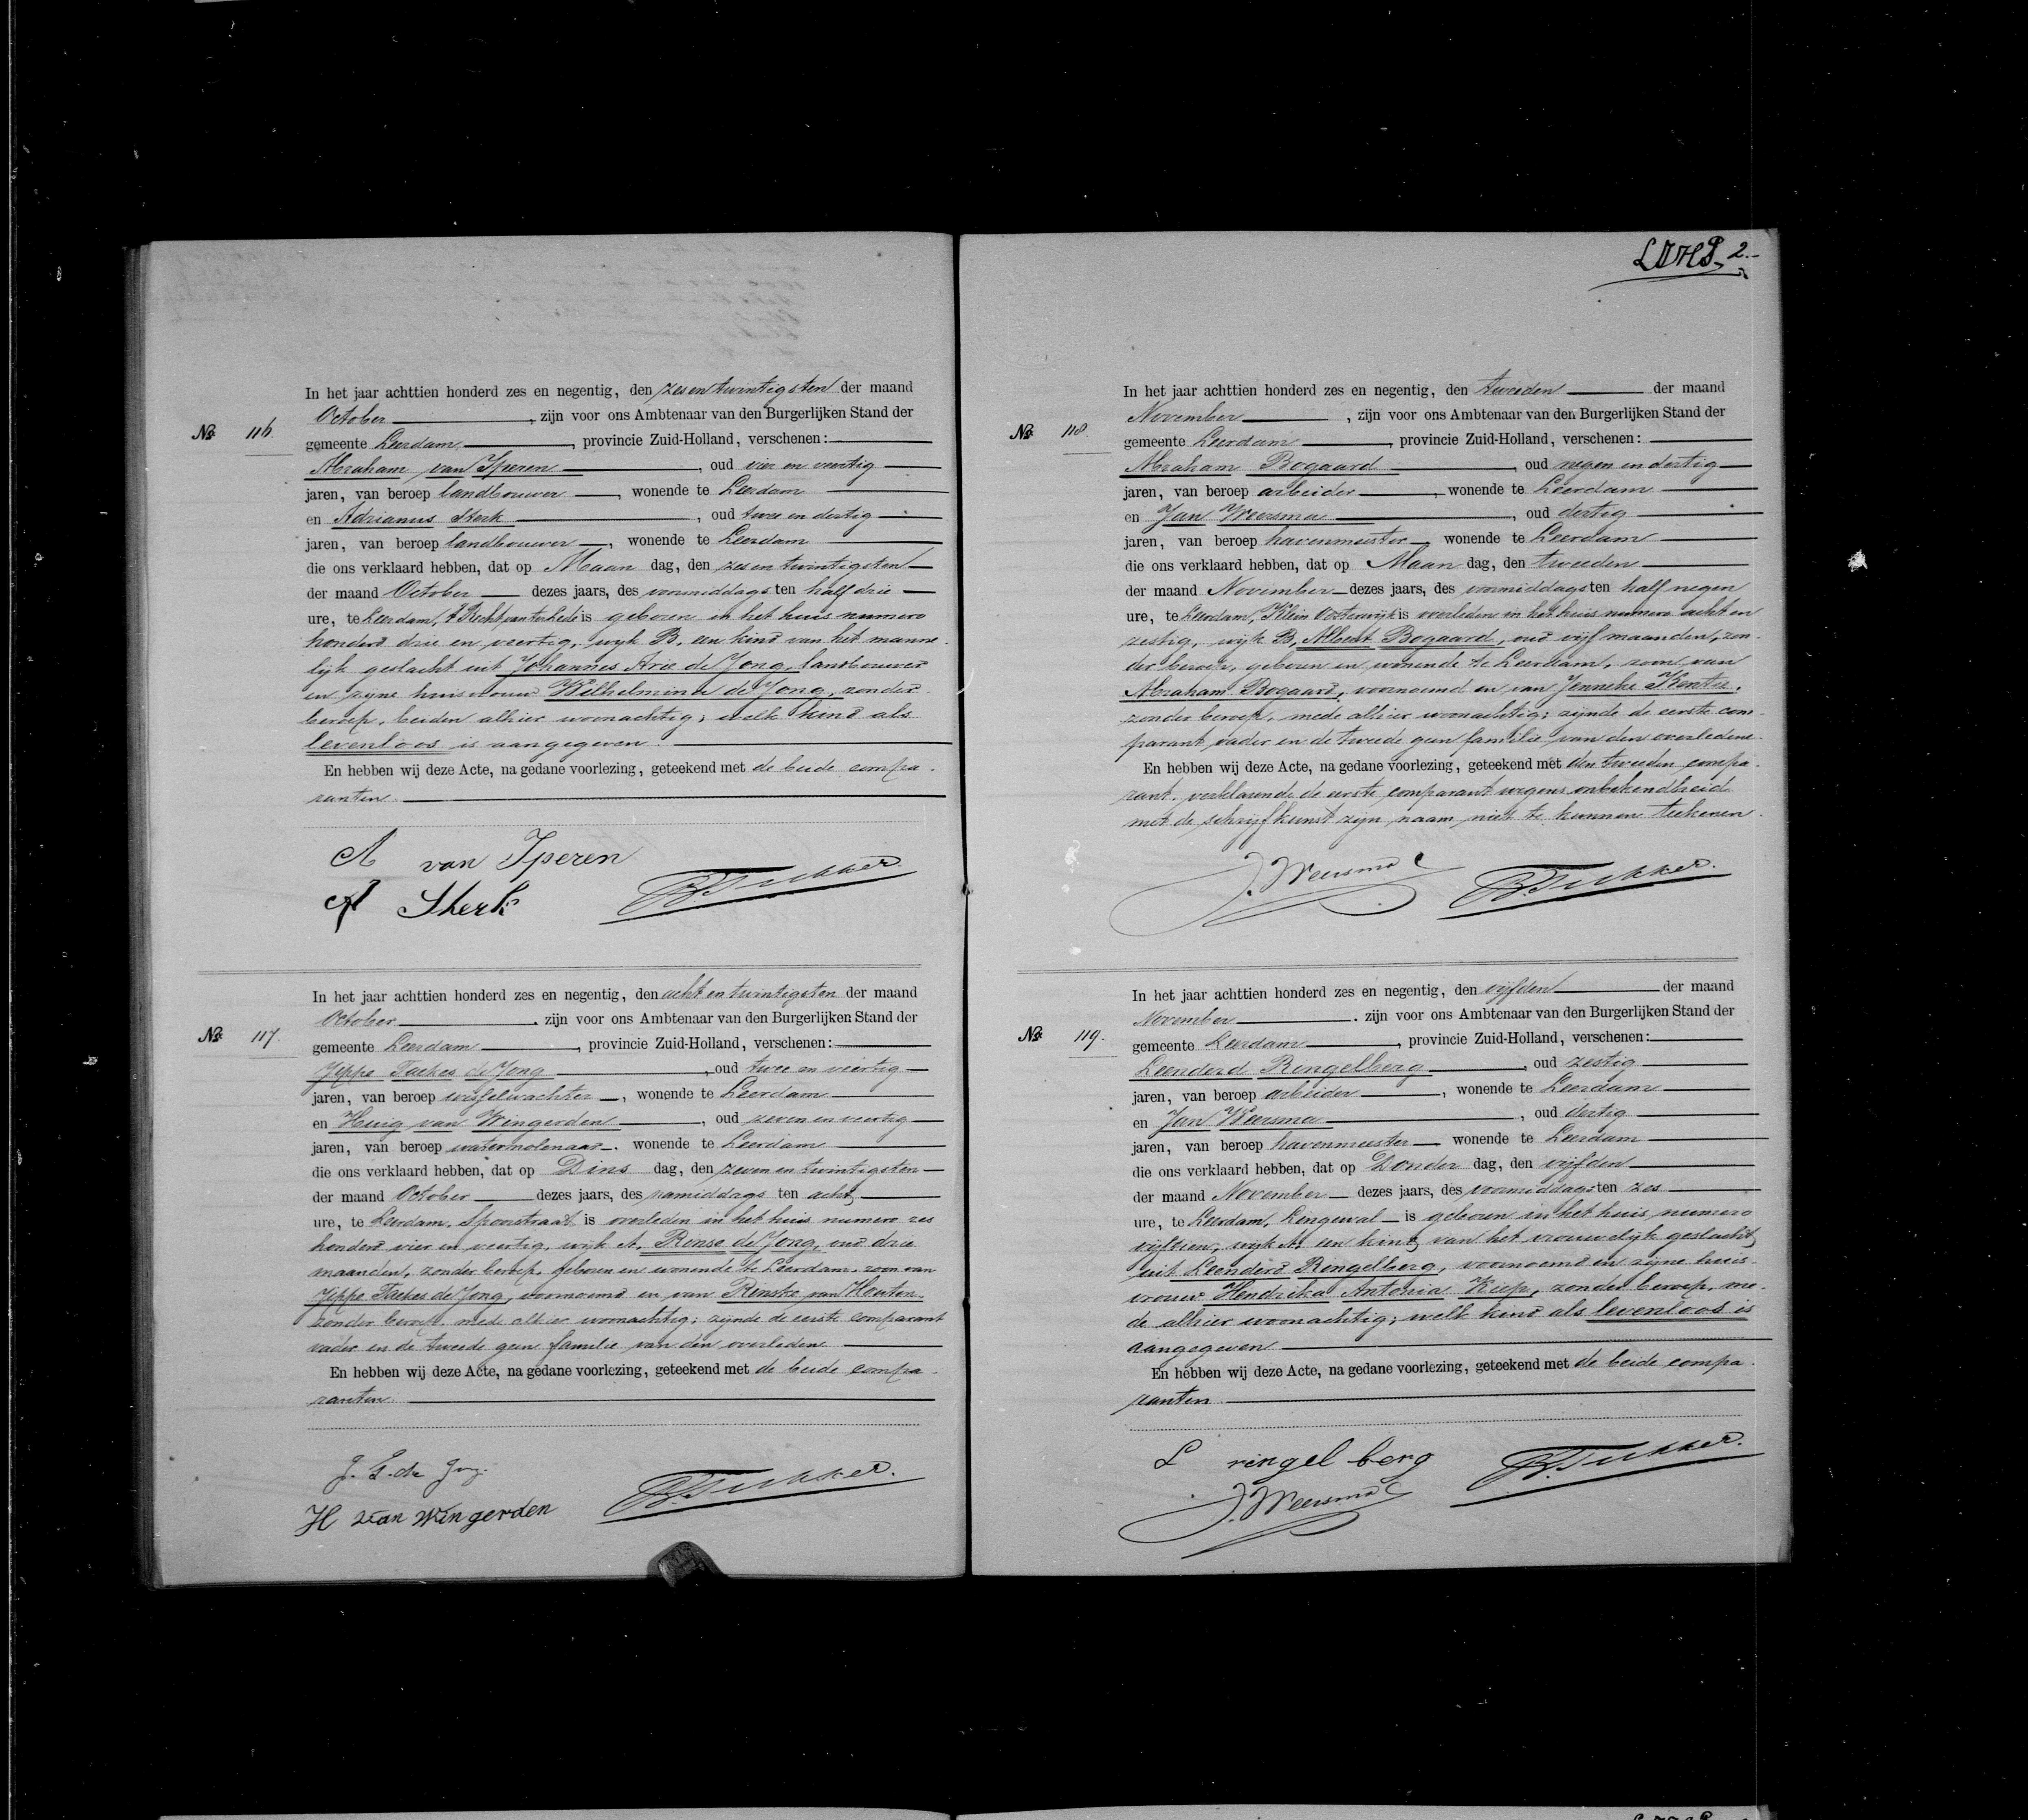 In het jaar achttien honderd zes en negentig, den zesentwintigsten der maand
October, zijn voor ons Ambtenaar van den Burgerlijken Stand der
No. 116.
gemeente Leerdam, provincie Zuid-Holland, verschenen:
Abraham van Iperen, oud vier en veertig
jaren, van beroep landbouwer, wonende te Leerdam
en Adrianus Sterk, oud twee en dertig
jaren, van beroep landbouwer, wonende te Leerdam
die ons verklaard hebben, dat op Maan dag, den zesentwintigsten
der maand October dezes jaars, des voormiddags ten half drie
ure, te Leerdam, is geboren in het huis numero
honderd drie en veertig, wijk B. een kind van het manne-
lijk geslacht uit Johannes Arie de Jong, landbouwer
en zijne huisvrouw Wilhelmina de Jong, zonder
beroep, beiden alhier woonachtig; welk kind als
levenloos is aangegeven.
En hebben wij deze Acte, na gedane voorlezing, geteekend met de beide compa-
ranten.
A van Iperen
A Sterk
B. Tukker.
In het jaar achttien honderd zes en negentig, den acht en twintigsten der maand
October, zijn voor ons Ambtenaar van den Burgerlijken Stand der
No. 117.
gemeente Leerdam, provincie Zuid-Holland, verschenen:
Jippe de Jong, oud twee en veertig
jaren, van beroep wisselwachter, wonende te Leerdam
en Huig van Wingerden, oud zeven en veertig
jaren, van beroep watermolenaar, wonende te Leerdam
die ons verklaard hebben, dat op Dins dag, den zeven en twintigsten
der maand October dezes jaars, des namiddags ten acht
ure, te Leerdam, Spoorstraat is overleden in het huis numero zes
honderd vier en veertig, wijk A, Rense de Jong, oud drie
maanden, zonder beroep, geboren en wonende te Leerdam, zoon van
Jippe de Jong, voornoemd en van Renske van Houten,
zonder beroep, mede alhier woonachtig; zijnde de eerste comparant
vader en de tweede geen familie van den overledene
En hebben wij deze Acte, na gedane voorlezing, geteekend met de beide compa-
ranten.
J. T. de Jong.
H van Wingerden
B. Tukker.
2.
In het jaar achttien honderd zes en negentig, den tweeden der maand
November, zijn voor ons Ambtenaar van den Burgerlijken Stand der
No. 118
gemeente Leerdam, provincie Zuid-Holland, verschenen:
Abraham Bogaard, oud negen en dertig
jaren, van beroep arbeider, wonende te Leerdam
en Jan Weersma, oud dertig
jaren, van beroep havenmeester, wonende te Leerdam
die ons verklaard hebben, dat op Maan dag, den tweeden
der maand November dezes jaars, des voormiddags ten half negen
ure, te Leerdam, Klein Oosterwijk is overleden in het huis numero acht en
zestig, wijk B, Albert Bogaard, oud vijf maanden, zon-
der beroep, geboren en wonende te Leerdam, zoon van
Abraham Bogaard, voornoemd en van Jenneke Kenter,
zonder beroep, mede alhier woonachtig; zijnde de eerste com-
parant vader en de tweede geen familie van den overledene.
En hebben wij deze Acte, na gedane voorlezing, geteekend met den tweeden compa-
rant, verklarende de eerste comparant wegens onbekendheid
met de schrijfkunst zijn naam niet te kunnen teekenen.
J. Weersma
B. Tukker.
In het jaar achttien honderd zes en negentig, den vijfden der maand
November, zijn voor ons Ambtenaar van den Burgerlijken Stand der
No. 119.
gemeente Leerdam, provincie Zuid-Holland, verschenen:
Leenderd Ringelberg, oud zestig
jaren, van beroep arbeider, wonende te Leerdam
en Jan Weersma, oud dertig
jaren, van beroep havenmeester, wonende te Leerdam
die ons verklaard hebben, dat op Donder dag, den vijfden
der maand November dezes jaars, des voormiddags ten zes
ure, te Leerdam, Lingewal is geboren in het huis numero
vijftien, wijk A, een kind van het vrouwelijk geslacht
uit Leenderd Ringelberg, voornoemd en zijne huis-
vrouw Hendrika Antonia Kiep, zonder beroep, me-
de alhier woonachtig; welk kind als levenloos is
aangegeven
En hebben wij deze Acte, na gedane voorlezing, geteekend met de beide compa-
ranten
L ringel berg
J. Weersma
B. Tukker.